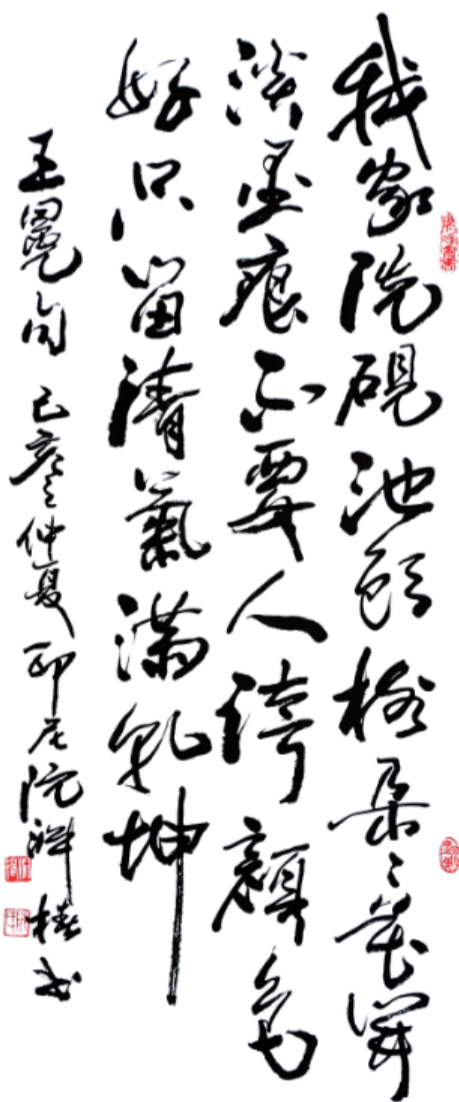 我家洗硯池頭樹朵〻花開
淡墨痕不要人誇顏色
好只留清氣滿乾坤
王冕句 己亥之仲夏 印尼阮祥椿书